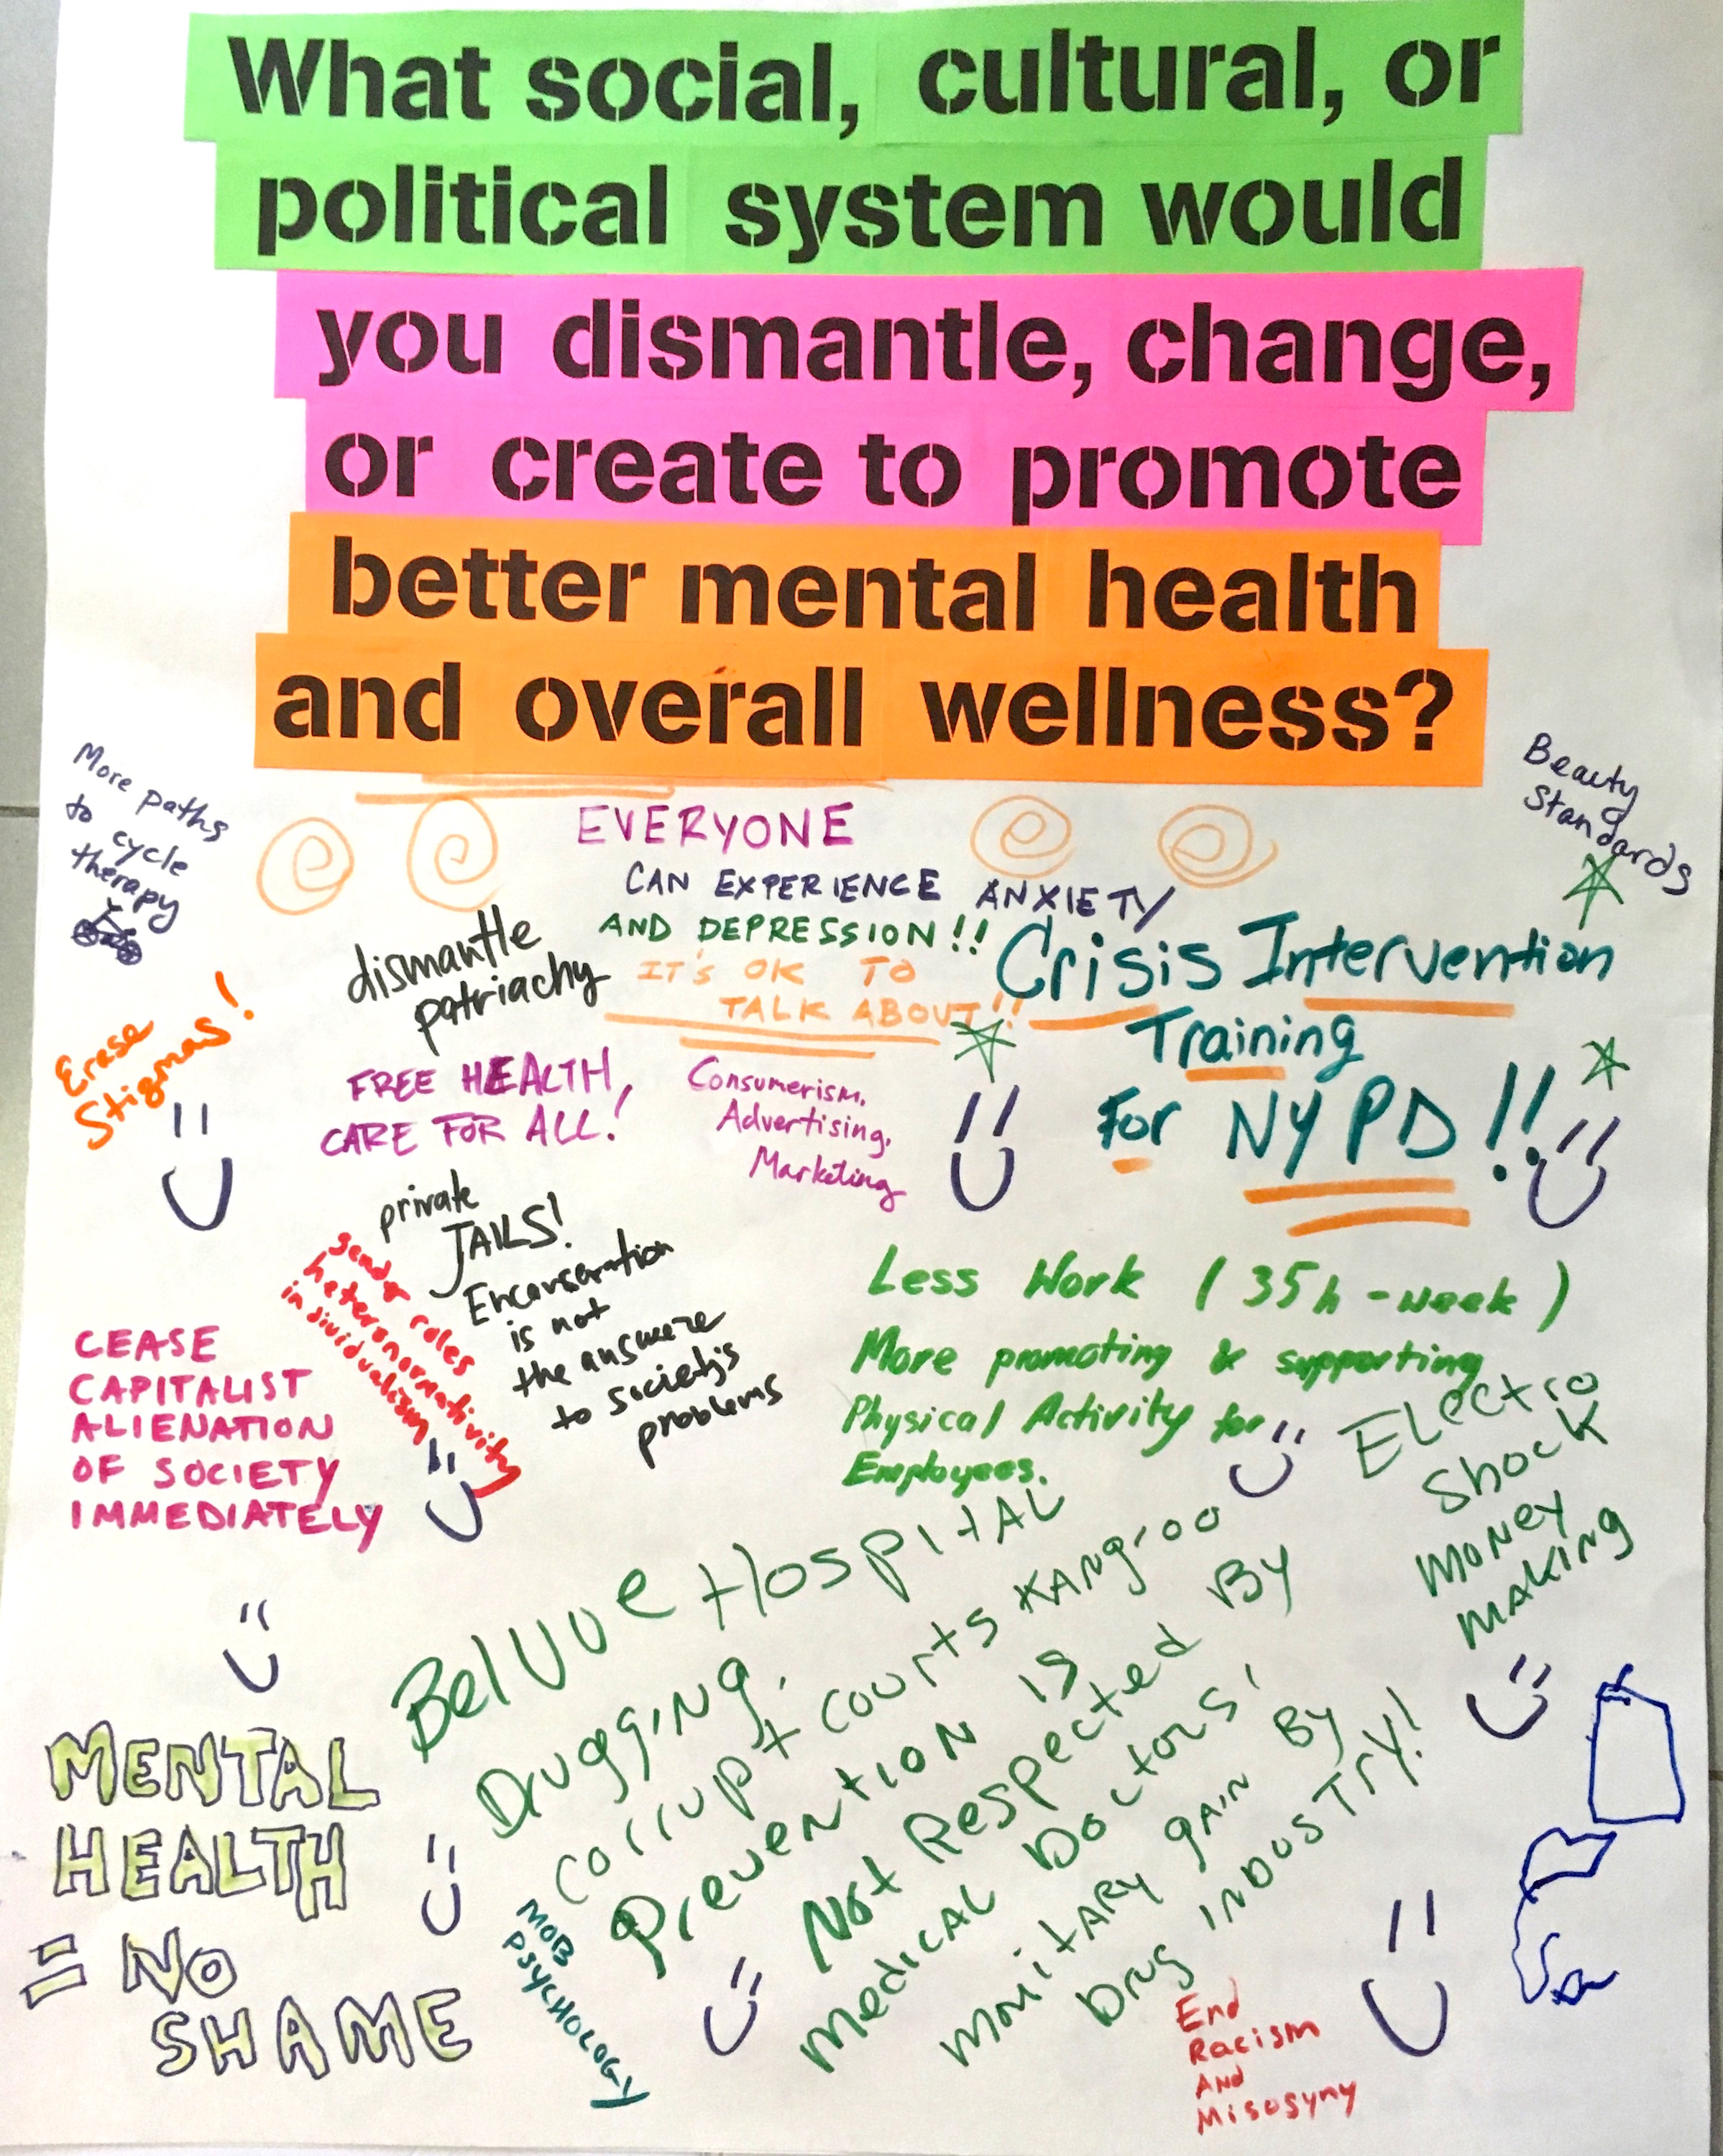 What social, cultural, or
political system would
you dismantle, change,
or create to promote
better mental health
and overall wellness?
More paths
to cycle
therapy
Beauty
Standards
EVERYONE
CAN EXPERIENCE ANXIETY
AND DEPRESSION!!
IT'S OK TO
TALK ABOUT!!
dismantle
patriachy
Crisis Intervention
Training
For NYPD!!
Erase
Stigmas!
FREE HEALTH,
CARE FOR ALL!
Consumerism,
Advertising,
Marketing
private
JAILS!
Encarseration
is not
the answere
to society's
problems
gender roles
heteronormativity
individualism
CEASE
CAPITALIST
ALIENATION
OF SOCIETY
IMMEDIATELY
Less Work (35h-week)
More promoting & supporting
Physical Activity for
Employees.
Electro
Shock
Money
making
Belvue Hospital
Drugging.
Corrupt courts KANgroo
Prevention is
Not Respected By
Medical Doctors'
Monitary gain By
Drug industry!
MENTAL
HEALTH
= NO
SHAME
MOB
PSYCHOLOGY
End
Racism
And
Misosyny